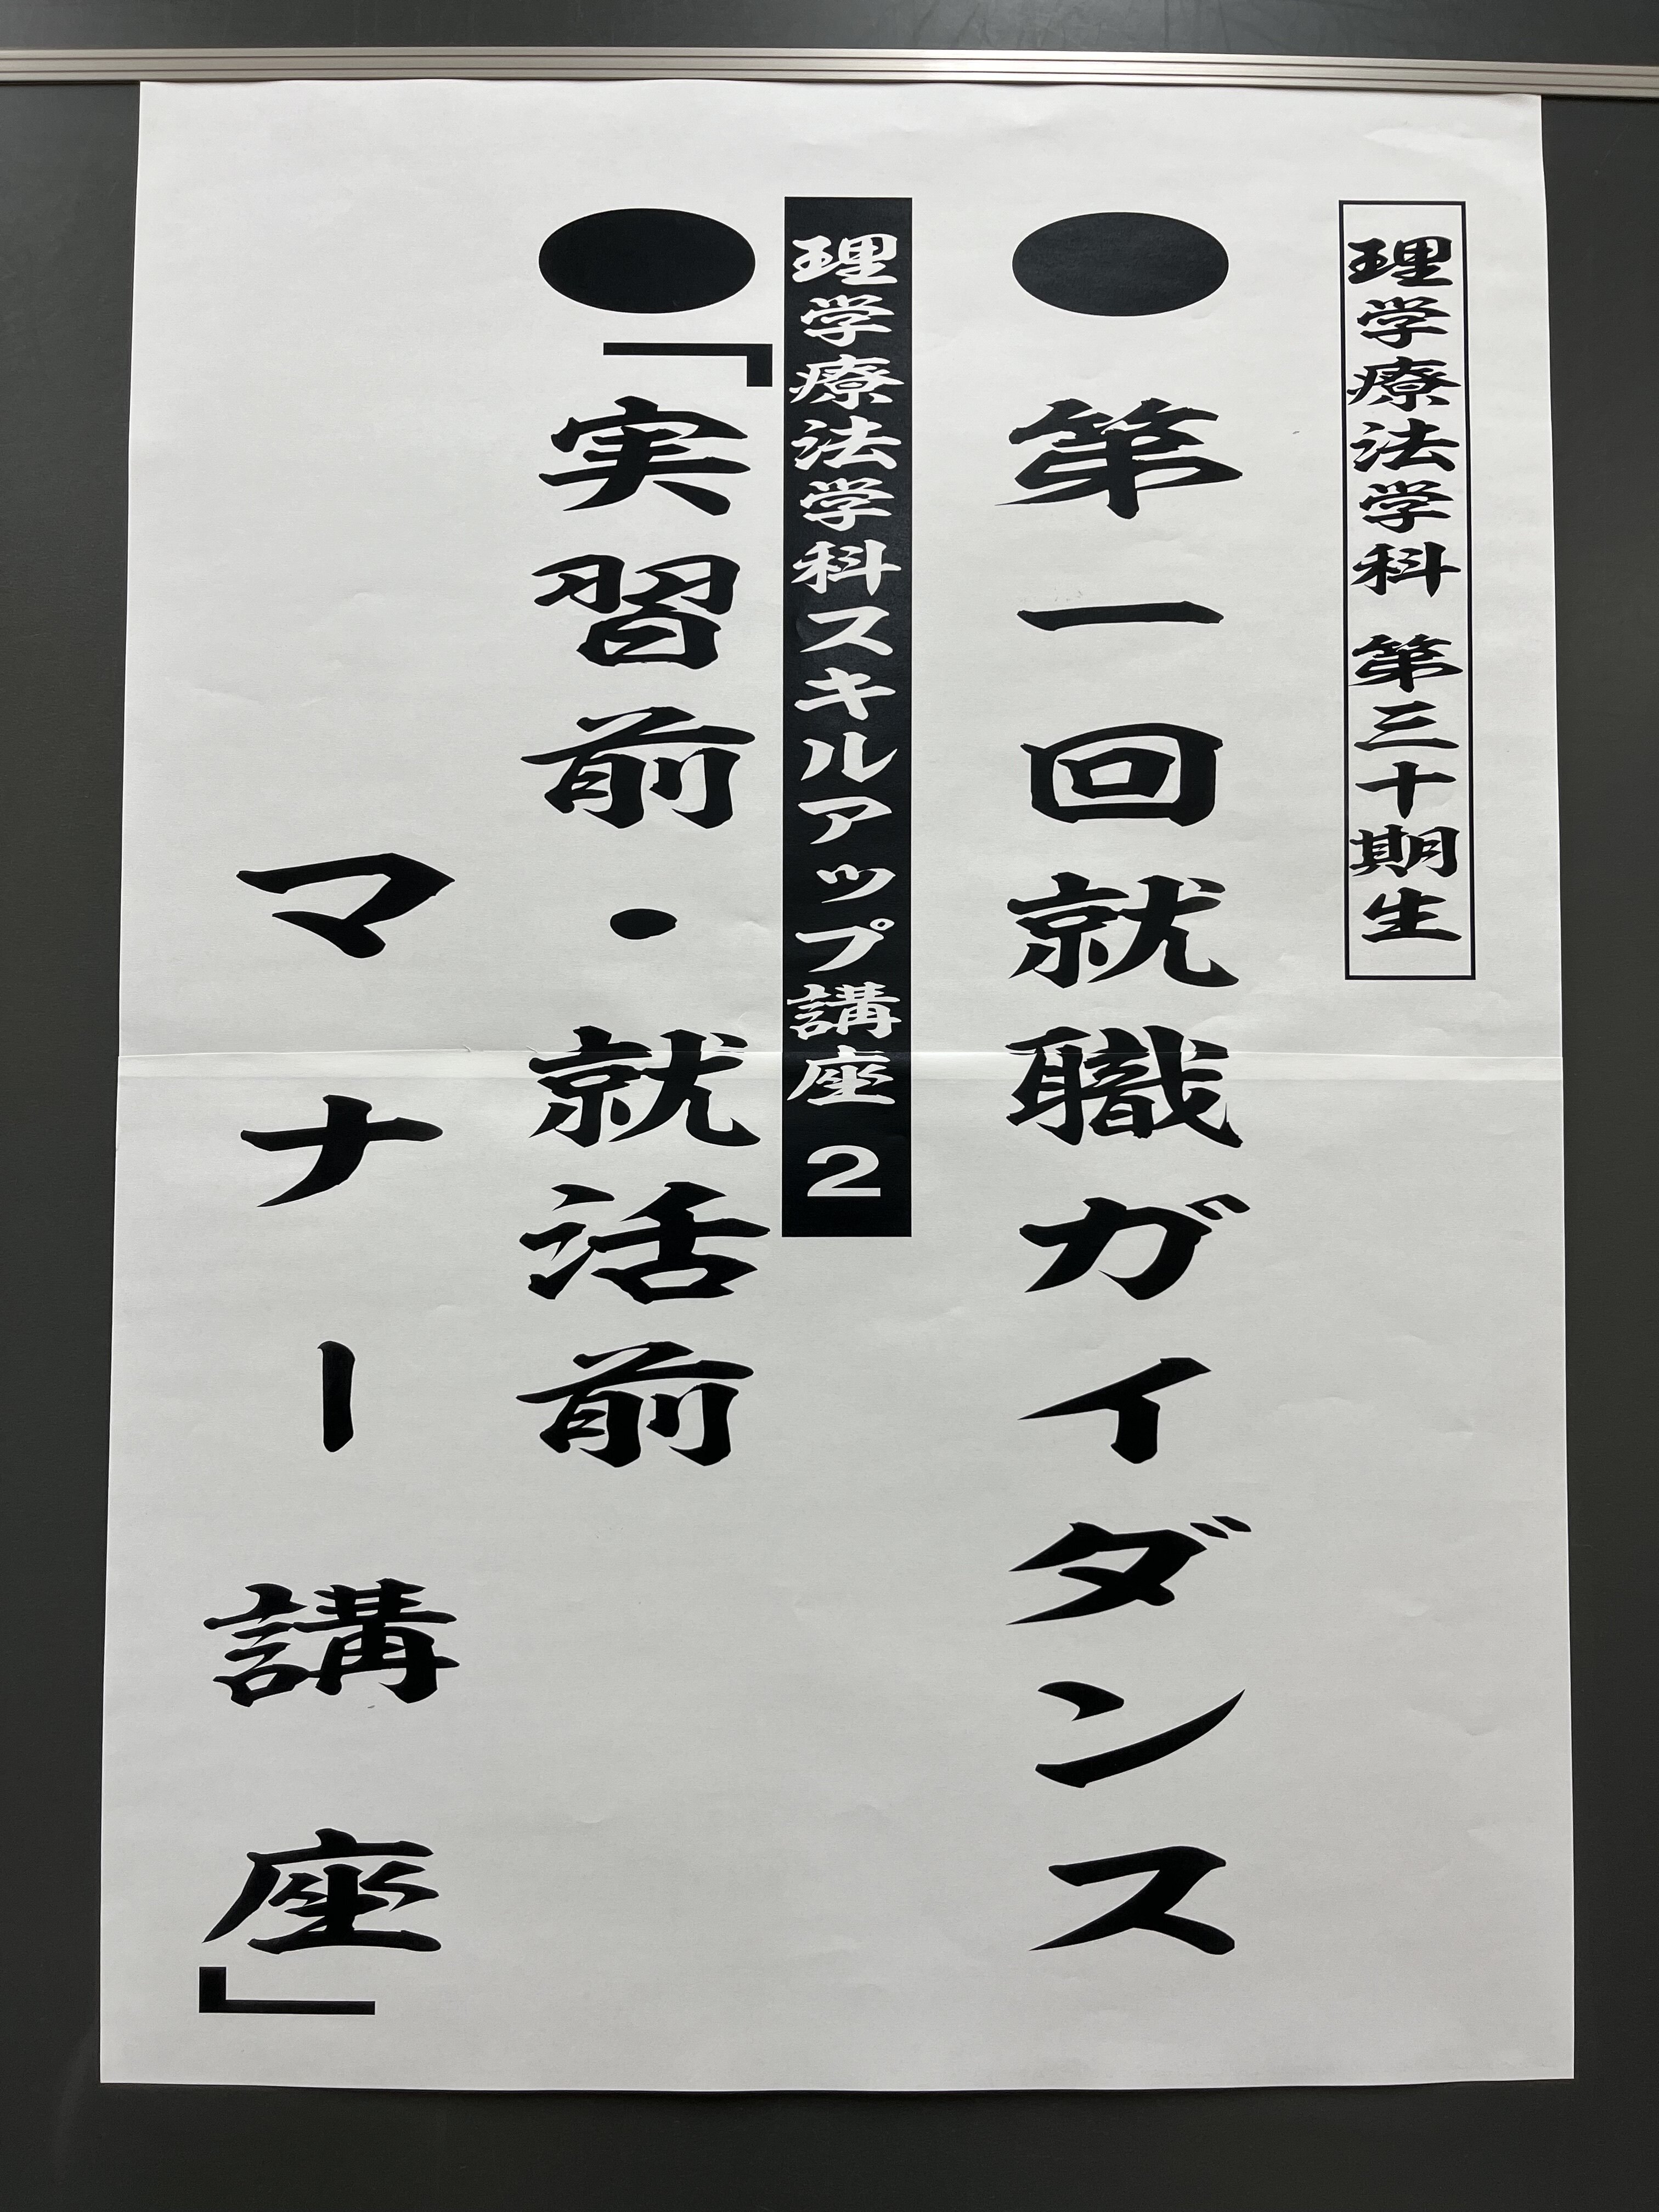 理学療法学科 第三十期生
●第一回就職ガイダンス
理学療法学科スキルアップ講座2
●「実習前・就活前
マナー講座」